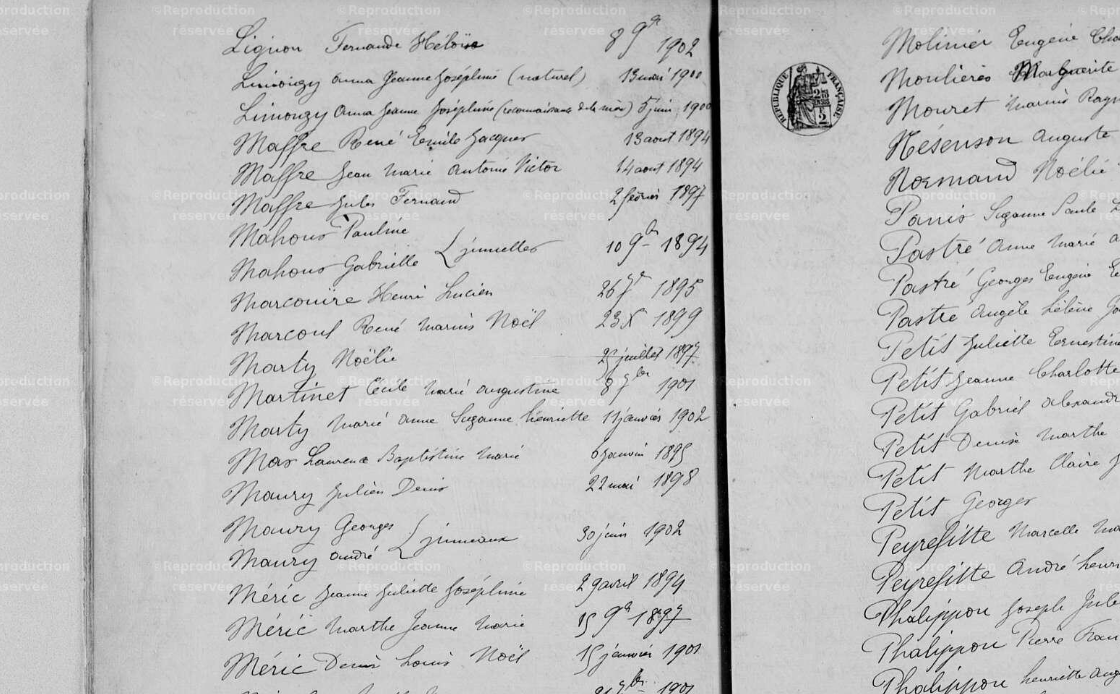 Lignon Fernande Héloïse 8 9bre 1902
Limouzy Anna Jeanne Joséphine (naturel) 13 mai 1900
Limouzy Anna Jeanne Joséphine (reconnaissance de la mère) 5 juin 1900
Maffre René Emile Jacques 13 aout 1894
Maffre Jean Marie Antonin Victor 14 aout 1894
Maffre Jules Fernand 2 février 1897
Mahous Pauline
Mahous Gabrielle jumelles 10 9bre 1894
Marcouire Henri Lucien 26 1895
Marcoul René Marius Noël 23 X 1899
Marty Noëlie juillet 1897
Martinet Marie Augustine 8 1901
Marty Marie Anne Suzanne Henriette 11 janvier 1902
Mas Laurence Baptistine Marie 6 janvier 1895
Maury Julien Denis 22 mai 1898
Maury Georges
Maury André jumeaux 30 juin 1902
Méric Jeanne Juliette Joséphine 29 avril 1894
Méric Marthe Jeanne Marie 15 9bre 1897
Méric Denis Louis Noël 15 janvier 1901
1901
RÉPUBLIQUE FRANÇAISE
Molinier Eugénie
Moulières Marguerite
Mouret Marius
Nésenson Auguste
Normand Noélie
Panis Suzanne Paule
Pastré Anne Marie
Pastré Georges Eugène
Pastré Angèle Hélène
Petit Juliette Ernestine
Petit Jeanne Charlotte
Petit Gabriel Alexandre
Petit Denise Marthe
Petit Marthe Claire
Petit Georges
Peyrefitte Marcelle
Peyrefitte André Henri
Phalippou Joseph
Phalippou Pierre
Phalippou Henriette
©Reproduction réservée